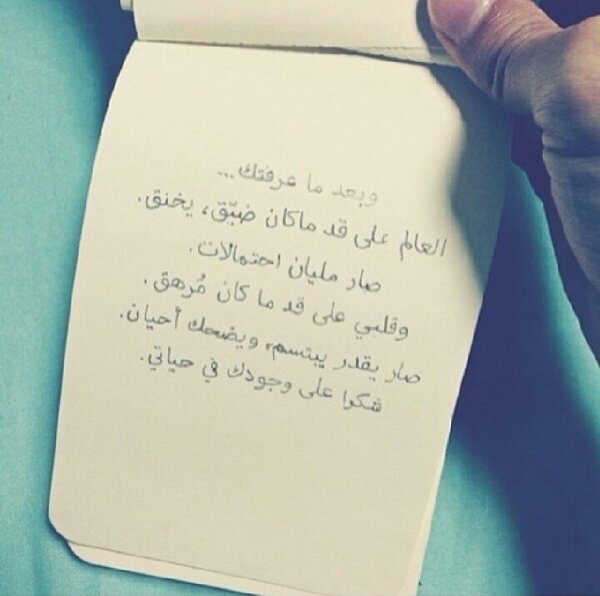 وبعد ما عرفتك...
العالم على قد ماكان ضيّق، يخنق.
صار مليان احتمالات.
وقلبي على قد ما كان مُرهق.
صار يقدر يبتسم، ويضحك أحيان.
شكرا على وجودك في حياتي.